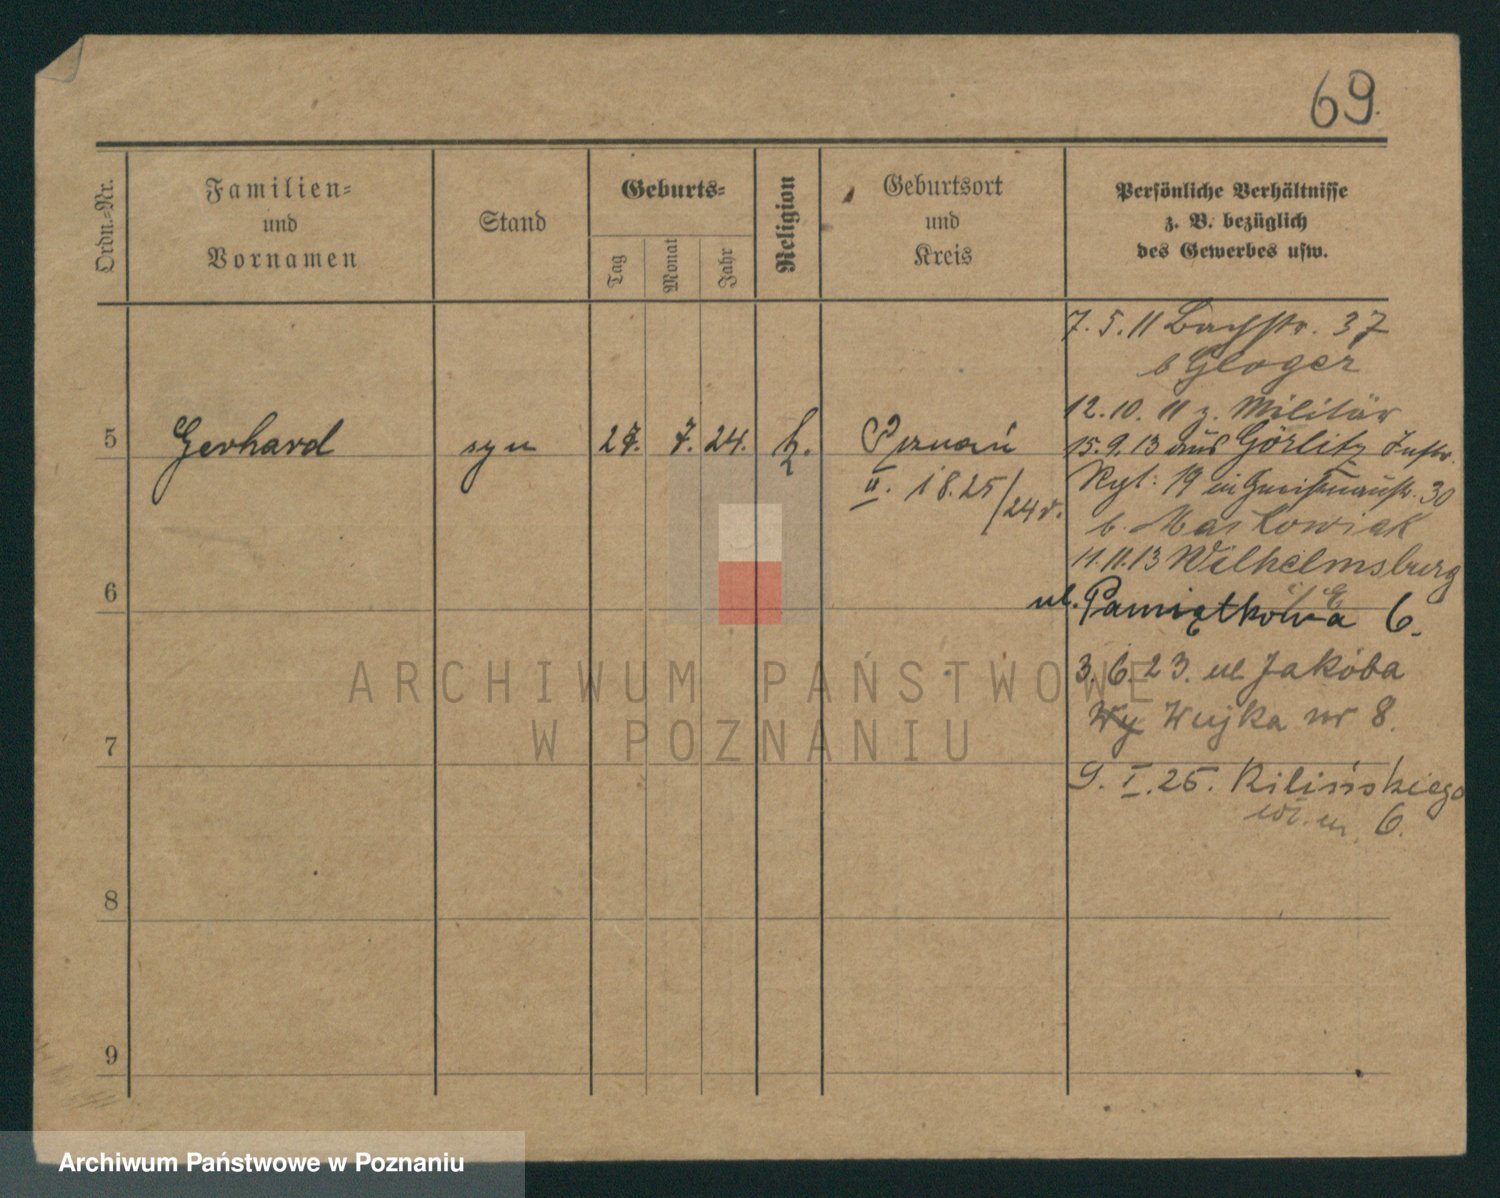 69.
Ordn.-Nr.
Familien-
und
Vornamen
Stand
Geburts-
Tag
Monat
Jahr
Religion
Geburtsort
und
Kreis
Persönliche Verhältnisse
z. B. bezüglich
des Gewerbes usw.
7. 5. 11 Bachstr. 37
b Gloger
12. 10. 11 z. Militär
5 Gerhard syn 27. 7. 24. k. Poznań
15. 9. 13 aus Görlitz Inftr.
II. 18.25/24 r.
Rgt. 19 in Gneisenaustr. 30
b. Maćkowiak
11. 11. 13 Wilhelmsburg
6
ul. Pamiątkowa 6.
3. 6. 23. ul Jakóba
Wy Wujka nr 8.
7
9. I. 25. Kilińskiego
6.
8
9
ARCHIWUM PAŃSTWOWE
W POZNANIU
Archiwum Państwowe w Poznaniu